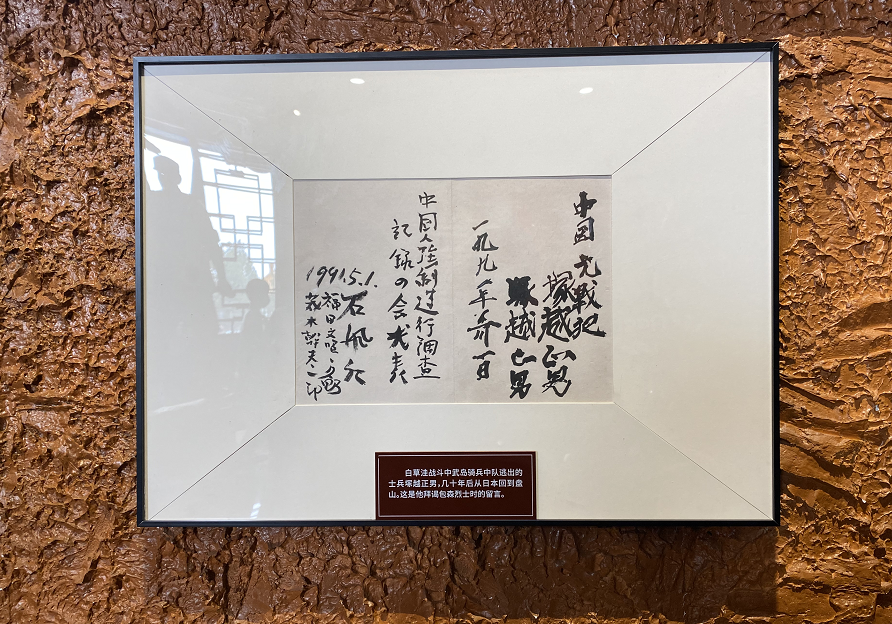 中国元戦犯
塚越正男
塚越正男
一九九一年 一日
中国人強制連行調査
記録の会代表
1991.5.1.
石
福田
夫
白草洼战斗中武岛骑兵中队逃出的
士兵塚越正男，几十年后从日本回到盘
山。这是他拜谒包森烈士时的留言。